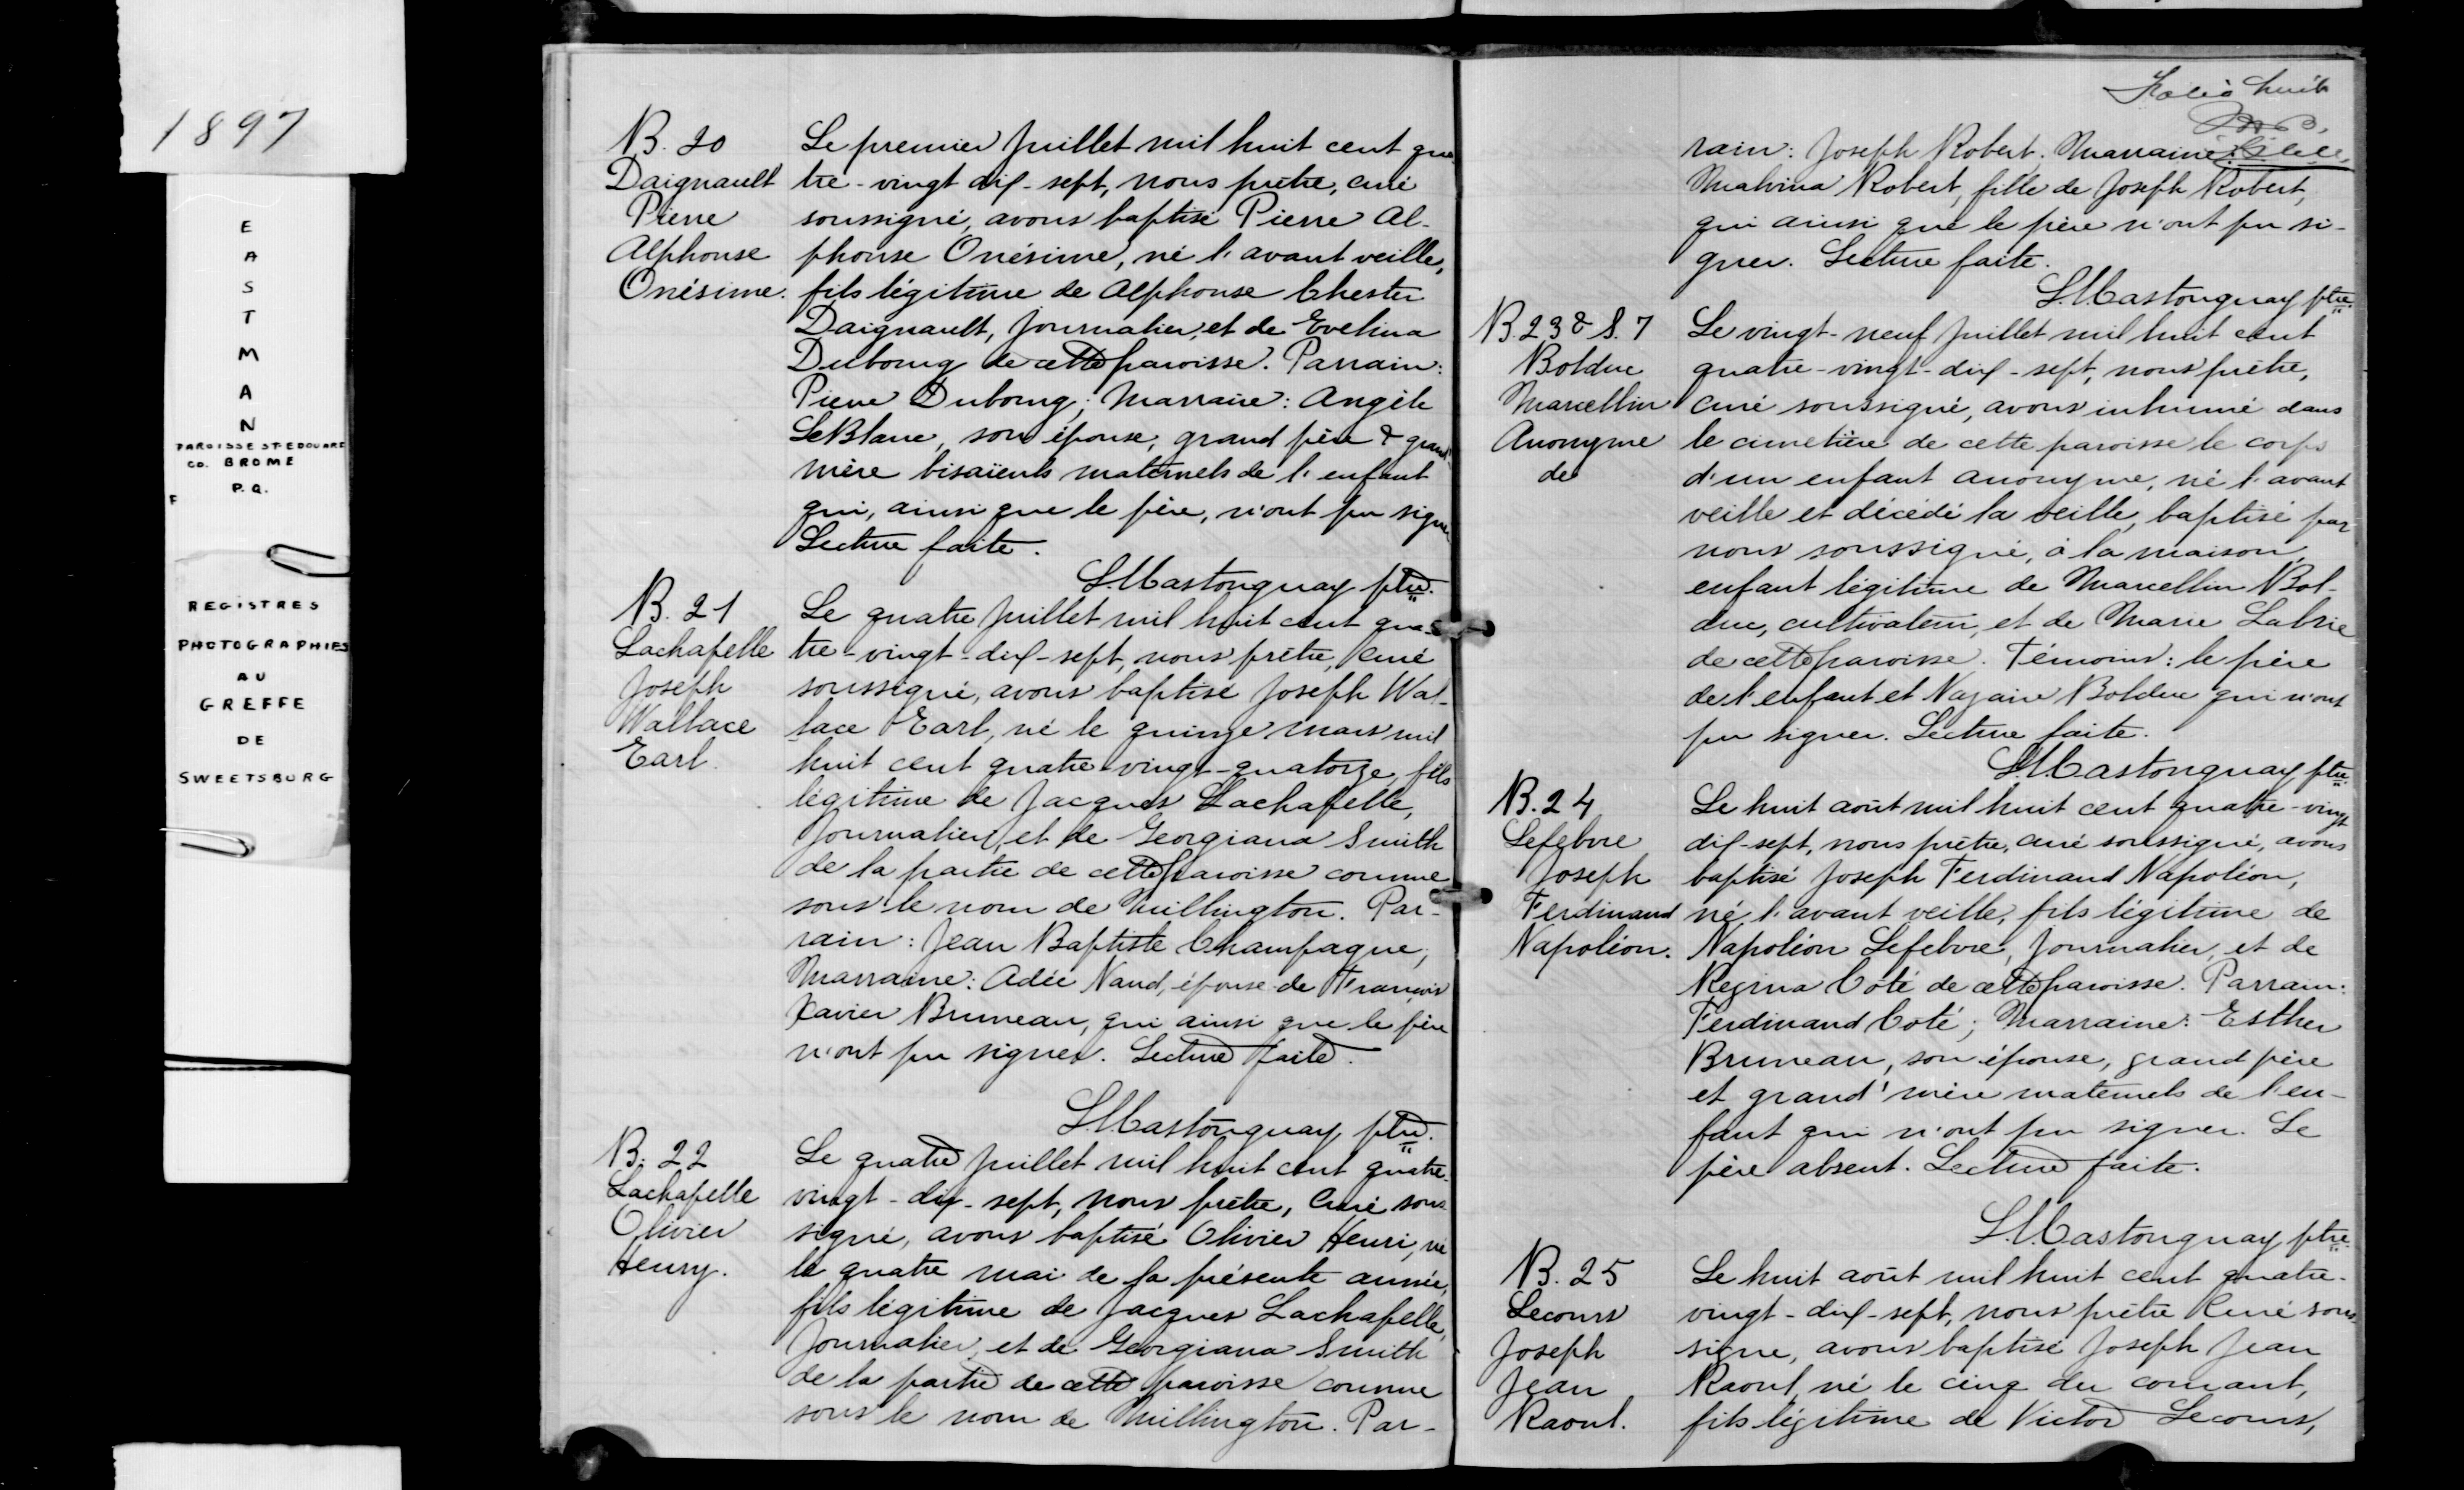 1897
E
A
S
T
M
A
N
PAROISSE ST-EDOUARD
CO. BROME
P.Q.
F
REGISTRES
PHOTOGRAPHIES
AU
GREFFE
DE
SWEETSBURG
B. 20
Daignault
Pierre
Alphonse
Onésime.
Le premier Juillet mil huit cent qua
tre-vingt dix-sept, nous prêtre, curé
soussigné, avons baptisé Pierre Al-
phonse Onésime, né l'avant veille,
fils légitime de Alphonse Chester
Daignault, Journalier, et de Evelina
Dubourg de cette paroisse. Parrain:
Pierre Dubourg; Marraine: Angèle
LeBlanc, son épouse, grand père & grand'
mère bisaïeuls maternels de l'enfant
qui, ainsi que le père, n'ont pu signer
Lecture faite.
L.M.Castonguay ptre.
B. 21
Lachapelle
Joseph
Wallace
Earl.
Le quatre Juillet mil huit cent qua-
tre-vingt-dix-sept, nous prêtre, curé
soussigné, avons baptisé Joseph Wal-
lace Earl, né le quinze mars mil
huit cent quatre-vingt-quatorze, fils
légitime de Jacques Lachapelle,
Journalier, et de Georgiana Smith
de la partie de cette paroisse connue
sous le nom de Millington. Par-
rain: Jean Baptiste Champagne,
Marraine: Adée Naud, épouse de François
Xavier Bruneau, qui ainsi que le père
n'ont pu signer. Lecture faite.
L.M.Castonguay ptre.
B. 22
Lachapelle
Olivier
Henry.
Le quatre Juillet mil huit cent quatre-
vingt-dix-sept, nous prêtre, Curé sous
signé, avons baptisé Olivier Henri, né
le quatre mai de la présente année,
fils légitime de Jacques Lachapelle,
Journalier, et de Georgiana Smith
de la partie de cette paroisse connue
sous le nom de Millington. Par-
Folio huit
rain: Joseph Robert. Marraine:
Malvina Robert, fille de Joseph Robert,
qui ainsi que le père n'ont pu si-
gner. Lecture faite.
L.M.Castonguay ptre.
B. 23 & S. 7
Bolduc
Marcellin
Anonyme
de
Le vingt-neuf Juillet mil huit cent
quatre-vingt-dix-sept, nous prêtre,
curé soussigné, avons inhumé dans
le cimetière de cette paroisse le corps
d'un enfant anonyme, né l'avant
veille et décédé la veille, baptisé par
nous soussigné, à la maison,
enfant légitime de Marcellin Bol-
duc, cultivateur, et de Marie Labrie
de cette paroisse. Témoins: le père
de l'enfant et Nazaire Bolduc qui n'ont
pu signer. Lecture faite.
L.M.Castonguay ptre.
B. 24
Lefebvre
Joseph
Ferdinand
Napoléon.
Le huit août mil huit cent quatre-vingt
dix-sept, nous prêtre, curé soussigné, avons
baptisé Joseph Ferdinand Napoléon,
né l'avant veille, fils légitime de
Napoléon Lefebvre, Journalier, et de
Regina Côté de cette paroisse. Parrain:
Ferdinand Coté; Marraine: Esther
Bruneau, son épouse, grand père
et grand'mère maternels de l'en-
fant qui n'ont pu signer. Le
père absent. Lecture faite.
L.M.Castonguay ptre.
B. 25
Lecours
Joseph
Jean
Raoul.
Le huit août mil huit cent quatre-
vingt-dix-sept, nous prêtre Curé sous-
signe, avons baptisé Joseph Jean
Raoul, né le cinq du courant,
fils légitime de Victor Lecours,